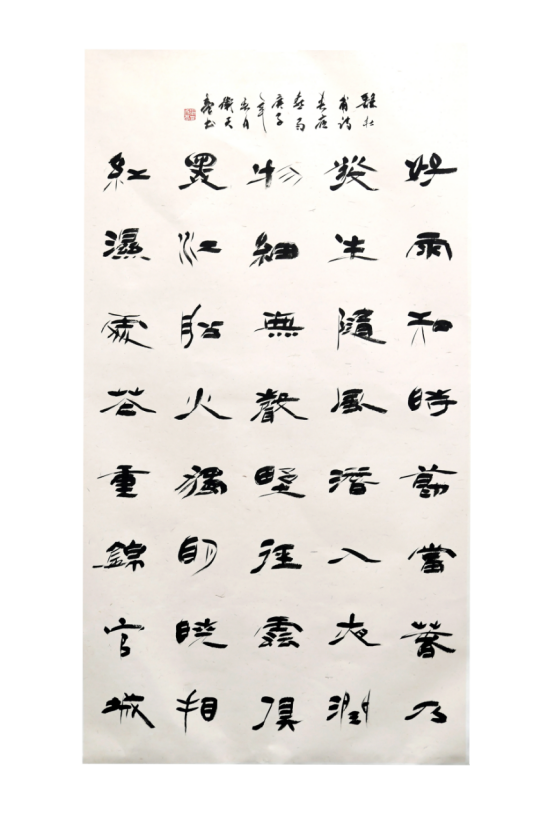 錄杜
甫詩
春夜
喜雨
庚子
年
天
書
好雨知時節當春乃
發生隨風潛入夜潤
物細無聲野徑雲俱
黑江船火獨明曉看
紅濕處花重錦官城